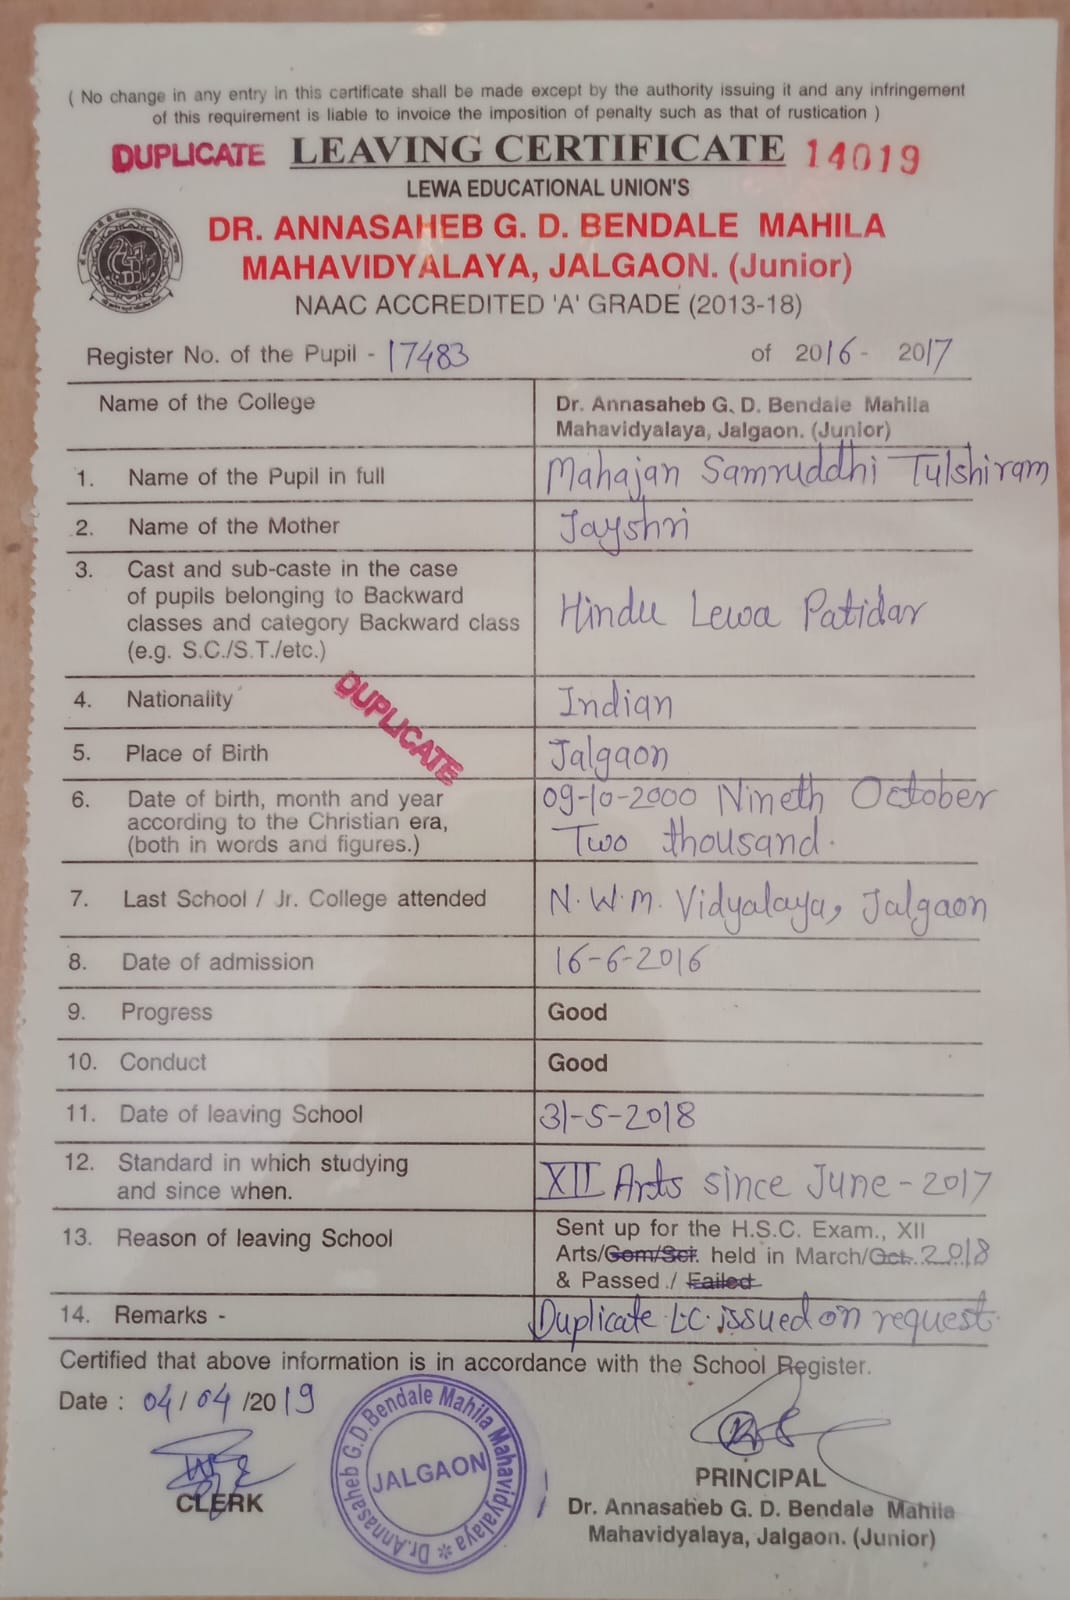 ( No change in any entry in this certificate shall be made except by the authority issuing it and any infringement
of this requirement is liable to invoice the imposition of penalty such as that of rustication )
DUPLICATE LEAVING CERTIFICATE 14019
LEWA EDUCATIONAL UNION'S
DR. ANNASAHEB G. D. BENDALE MAHILA
MAHAVIDYALAYA, JALGAON. (Junior)
NAAC ACCREDITED 'A' GRADE (2013-18)
Register No. of the Pupil - 17483 of 2016 - 2017
Name of the College
Dr. Annasaheb G. D. Bendale Mahila
Mahavidyalaya, Jalgaon. (Junior)
1. Name of the Pupil in full Mahajan Samruddhi Tulshiram
2. Name of the Mother Jayshri
3. Cast and sub-caste in the case
of pupils belonging to Backward
classes and category Backward class
(e.g. S.C./S.T./etc.)
Hindu Lewa Patidar
4. Nationality Indian
DUPLICATE
5. Place of Birth Jalgaon
6. Date of birth, month and year
according to the Christian era,
(both in words and figures.)
09-10-2000 Nineth October
Two thousand.
7. Last School / Jr. College attended N.W.M. Vidyalaya, Jalgaon
8. Date of admission 16-6-2016
9. Progress Good
10. Conduct Good
11. Date of leaving School 31-5-2018
12. Standard in which studying
and since when.
XII Arts since June - 2017
13. Reason of leaving School
Sent up for the H.S.C. Exam., XII
Arts/Com/Sci. held in March/Oct. 2018
& Passed / Failed
14. Remarks - Duplicate L.C. issued on request.
Certified that above information is in accordance with the School Register.
Date : 04/04/2019
CLERK
Dr.Annasaheb G.D.Bendale Mahila Mahavidyalaya *
JALGAON
PRINCIPAL
Dr. Annasaheb G. D. Bendale Mahila
Mahavidyalaya, Jalgaon. (Junior)